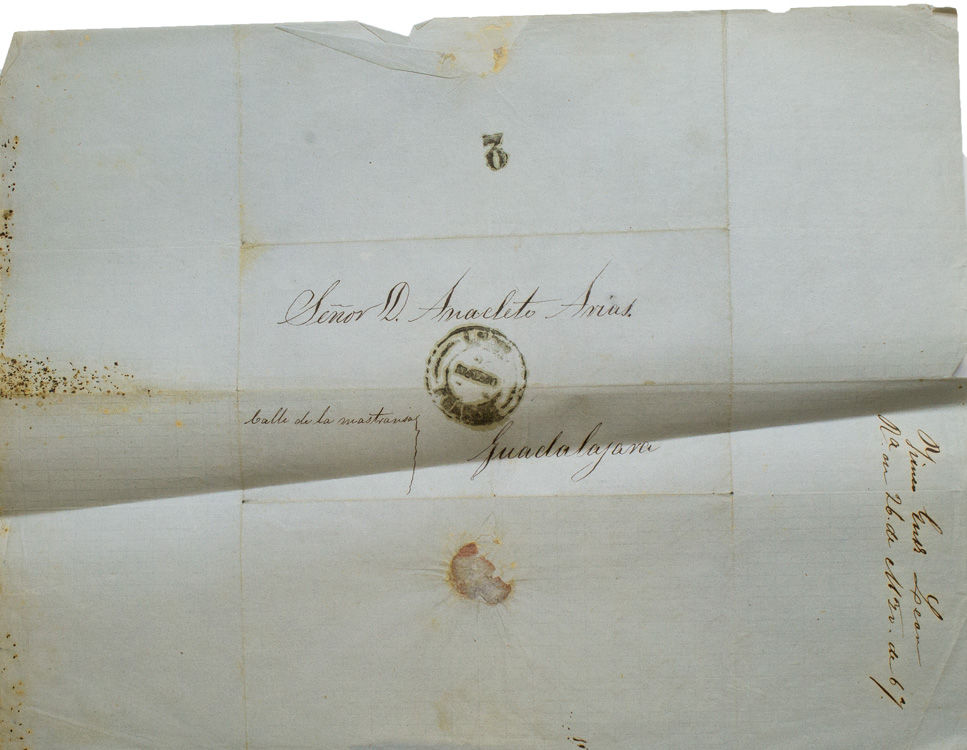 3
Señor D. Anacleto Arias.
Calle de la mastransa
Guadalajara
Leon
Rª. en 26. de Mzo. de 67.